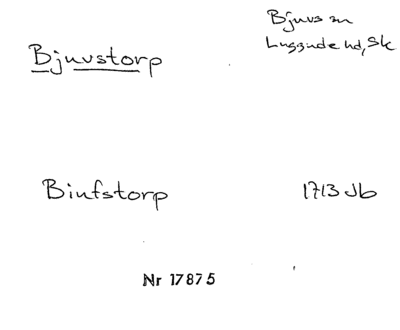 Bjuvstorp
Bjuvs sn
Luggude hd, Sk
Biufstorp
1713 Jb
Nr 17875